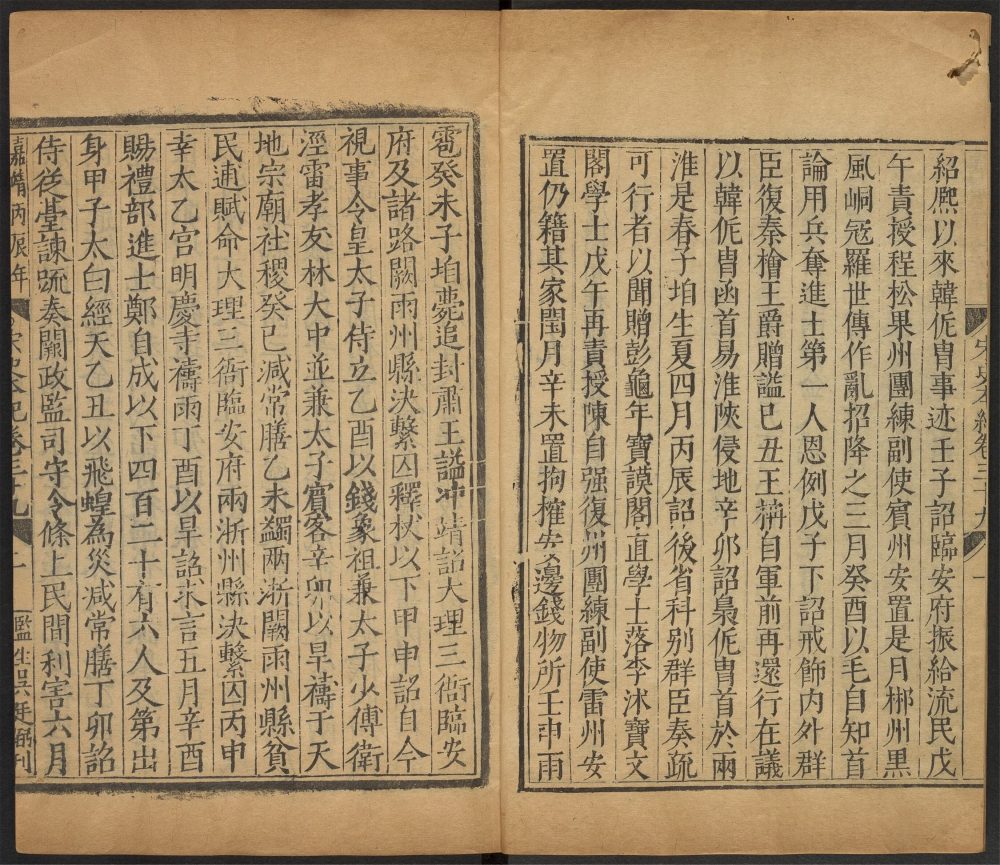 紹熙以來韓侂胄事迹壬子詔臨安府振給流民戊
午責授程松果州團練副使賓州安置是月郴州黑
風峒寇羅世傳作亂招降之三月癸酉以毛自知首
論用兵奪進士第一人恩例戊子下詔戒飭内外群
臣復秦檜王爵贈謚己丑王柟自軍前再還行在議
以韓侂胄函首易淮陝侵地辛卯詔梟侂胄首於兩
淮是春子垍生夏四月丙辰詔後省科別群臣奏疏
可行者以聞贈彭龜年寶謨閣直學士落李沐寶文
閣學士戊午再責授陳自强復州團練副使雷州安
置仍籍其家閏月辛未置拘榷安邊錢物所壬申雨
宋史本紀卷三十九
一
雹癸未子垍薨追封肅王謚冲靖詔大理三衙臨安
府及諸路闕雨州縣決繫囚釋杖以下甲申詔自今
視事令皇太子侍立乙酉以錢象祖兼太子少傅衛
涇雷孝友林大中並兼太子賓客辛卯以旱禱于天
地宗廟社稷癸巳減常膳乙未蠲兩浙闕雨州縣貧
民逋賦命大理三衙臨安府兩浙州縣決繫囚丙申
幸太乙宫明慶寺禱雨丁酉以旱詔求言五月辛酉
賜禮部進士鄭自成以下四百二十有六人及第出
身甲子太白經天乙丑以飛蝗為災減常膳丁卯詔
侍從臺諫疏奏闕政監司守令條上民間利害六月
嘉靖丙辰年
宋史本紀卷三十九
監生吳廷刊